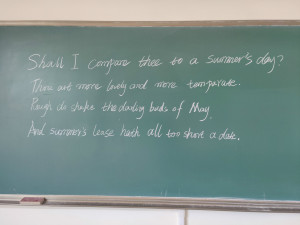 Shall I compare thee to a summer's day?
Thou art more lovely and more temparate.
Rough do shake the darling buds of May,
And summer's lease hath all too short a date.